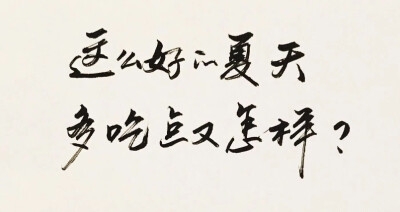 这么好的夏天
多吃点又怎样？